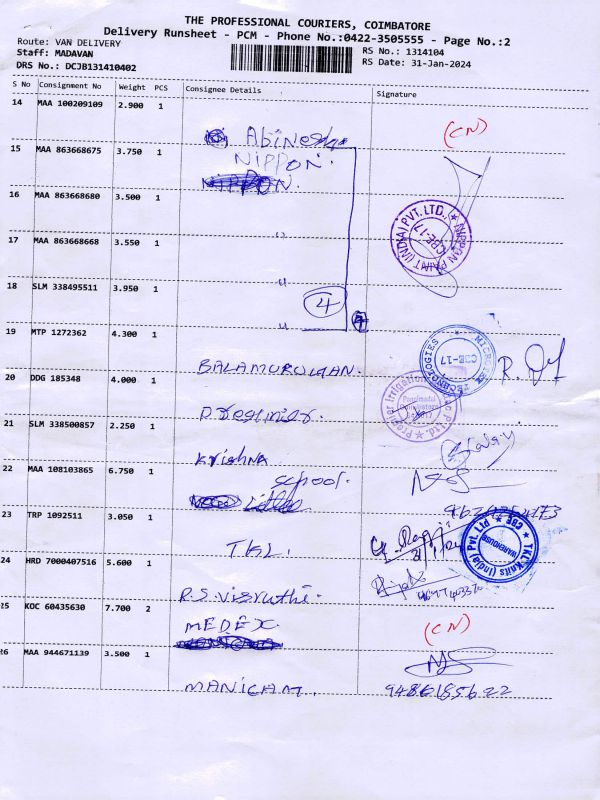 THE PROFESSIONAL COURIERS, COIMBATORE
Delivery Runsheet - PCM - Phone No.:0422-3505555 - Page No.:2
Route: VAN DELIVERY
Staff: MADAVAN
DRS No.: DCJB131410402
RS No.: 1314104
RS Date: 31-Jan-2024
S No Consignment No Weight PCS Consignee Details Signature
14 MAA 100209109 2.900 1
(CN)
15 MAA 863668675 3.750 1
NIPPON.
16 MAA 863668680 3.500 1
NIPPON PAINT (INDIA) PVT. LTD. CBE-17
17 MAA 863668668 3.550 1
18 SLM 338495511 3.950 1
4
19 MTP 1272362 4.300 1
TECHNOLOGIES CBE-17
BALAMURUGAN.
20 DDG 185348 4.000 1
Premier Irrigation
21 SLM 338500857 2.250 1
Krishna
22 MAA 108103865 6.750 1
School.
23 TRP 1092511 3.050 1
TKL.
TKL Knits (India) Pvt. Ltd CBE WAREHOUSE
24 HRD 7000407516 5.600 1
R.S. Visruthi.
25 KOC 60435630 7.700 2
MEDEX.
(CN)
26 MAA 944671139 3.500 1
MANICAM.